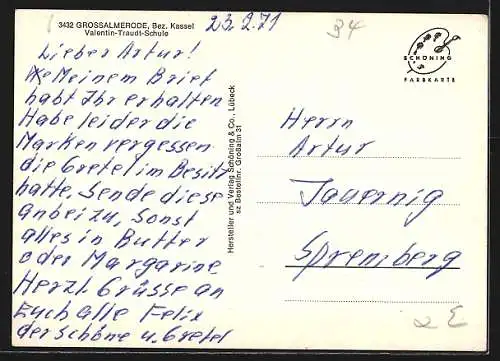 3432 GROSSALMERODE, Bez. Kassel
Valentin-Traudt-Schule
23.2.71
34
Lieber Artur!
Meinem Brief
habt Ihr erhalten
Habe leider die
Marken vergessen
die Gretel im Besitz
hatte, Sende diese
anbei zu, Sonst
alles in Butter
oder Margarine
Herzl. Grüsse an
Euch alle Felix
der schöne u. Gretel
Hersteller und Verlag Schöning & Co., Lübeck
sz Bestellnr. Großalm 31
SCHÖNING
FARBKARTE
Herrn
Artur
Jauernig
Spremberg
2 E